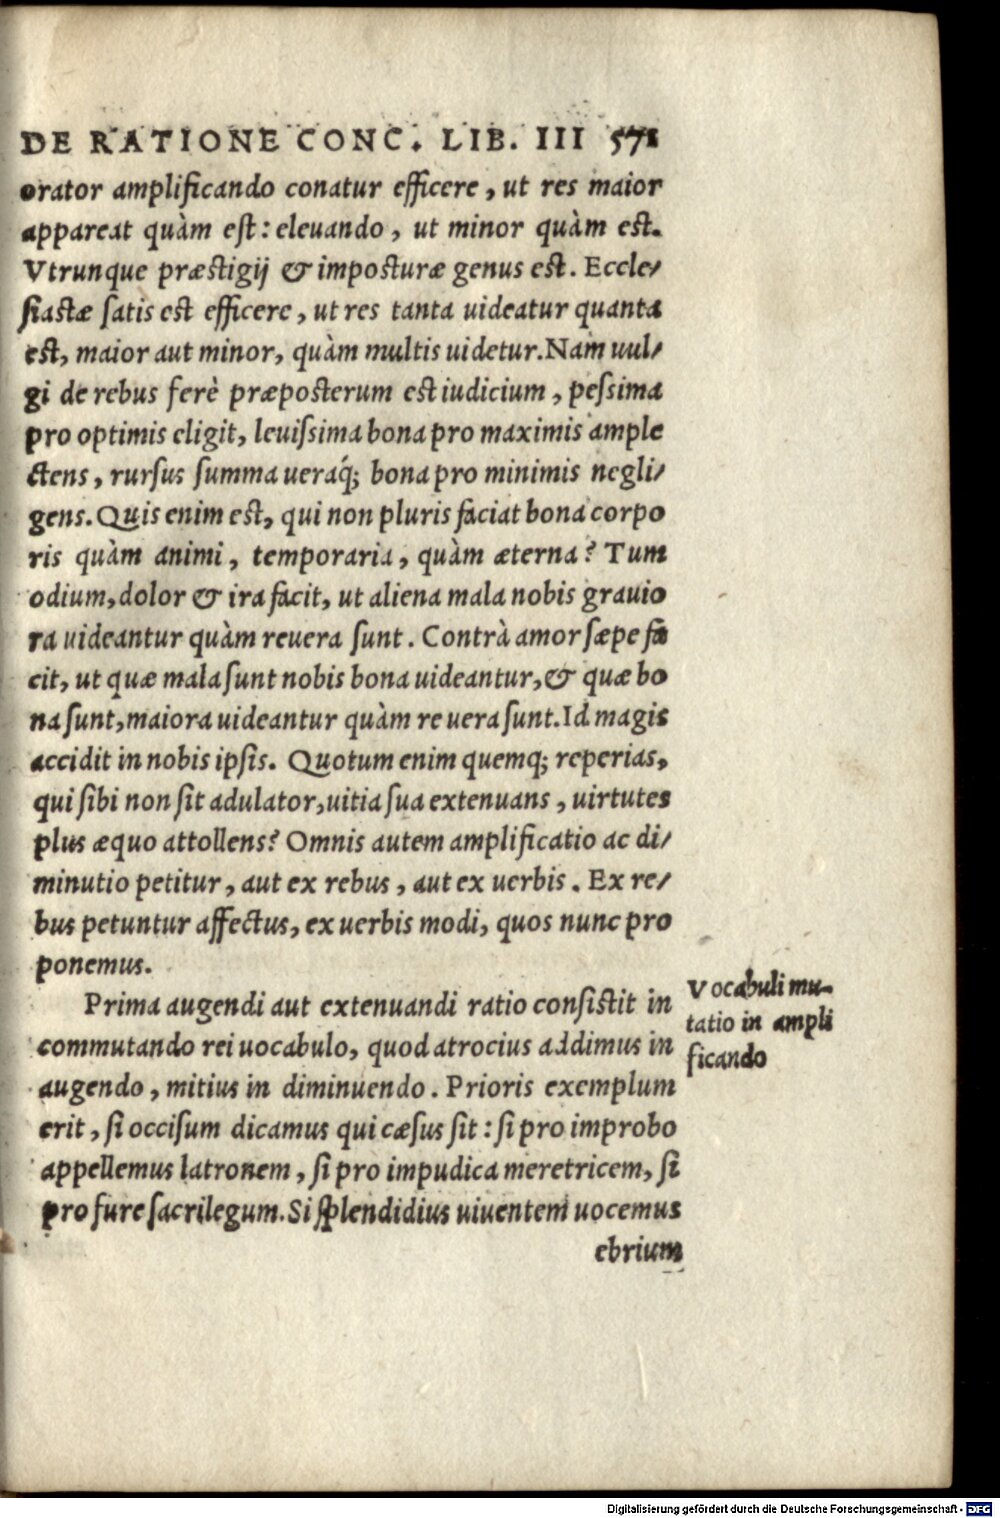 DE RATIONE CONC. LIB. III 571
orator amplificando conatur efficere, ut res maior
appareat quàm est: eleuando, ut minor quàm est.
Vtrunque præstigij & imposturæ genus est. Eccle/
siastæ satis est efficere, ut res tanta uideatur quanta
est, maior aut minor, quàm multis uidetur. Nam uul/
gi de rebus ferè præposterum est iudicium, pessima
pro optimis eligit, leuissima bona pro maximis ample
ctens, rursus summa ueraq́; bona pro minimis negli/
gens. Quis enim est, qui non pluris faciat bona corpo
ris quàm animi, temporaria, quàm æterna? Tum
odium, dolor & ira facit, ut aliena mala nobis grauio
ra uideantur quàm reuera sunt. Contrà amor sæpe fa
cit, ut quæ mala sunt nobis bona uideantur, & quæ bo
na sunt, maiora uideantur quàm reuera sunt. Id magis
accidit in nobis ipsis. Quotum enim quemq; reperias,
qui sibi non sit adulator, uitia sua extenuans, uirtutes
plus æquo attollens? Omnis autem amplificatio ac di/
minutio petitur, aut ex rebus, aut ex uerbis. Ex re/
bus petuntur affectus, ex uerbis modi, quos nunc pro
ponemus.
Prima augendi aut extenuandi ratio consistit in
commutando rei uocabulo, quod atrocius addimus in
augendo, mitius in diminuendo. Prioris exemplum
erit, si occisum dicamus qui cæsus sit: si pro improbo
appellemus latronem, si pro impudica meretricem, si
pro fure sacrilegum. Si splendidius uiuentem uocemus
ebrium
Vocabuli mu-
tatio in ampli
ficando
Digitalisierung gefördert durch die Deutsche Forschungsgemeinschaft - DFG